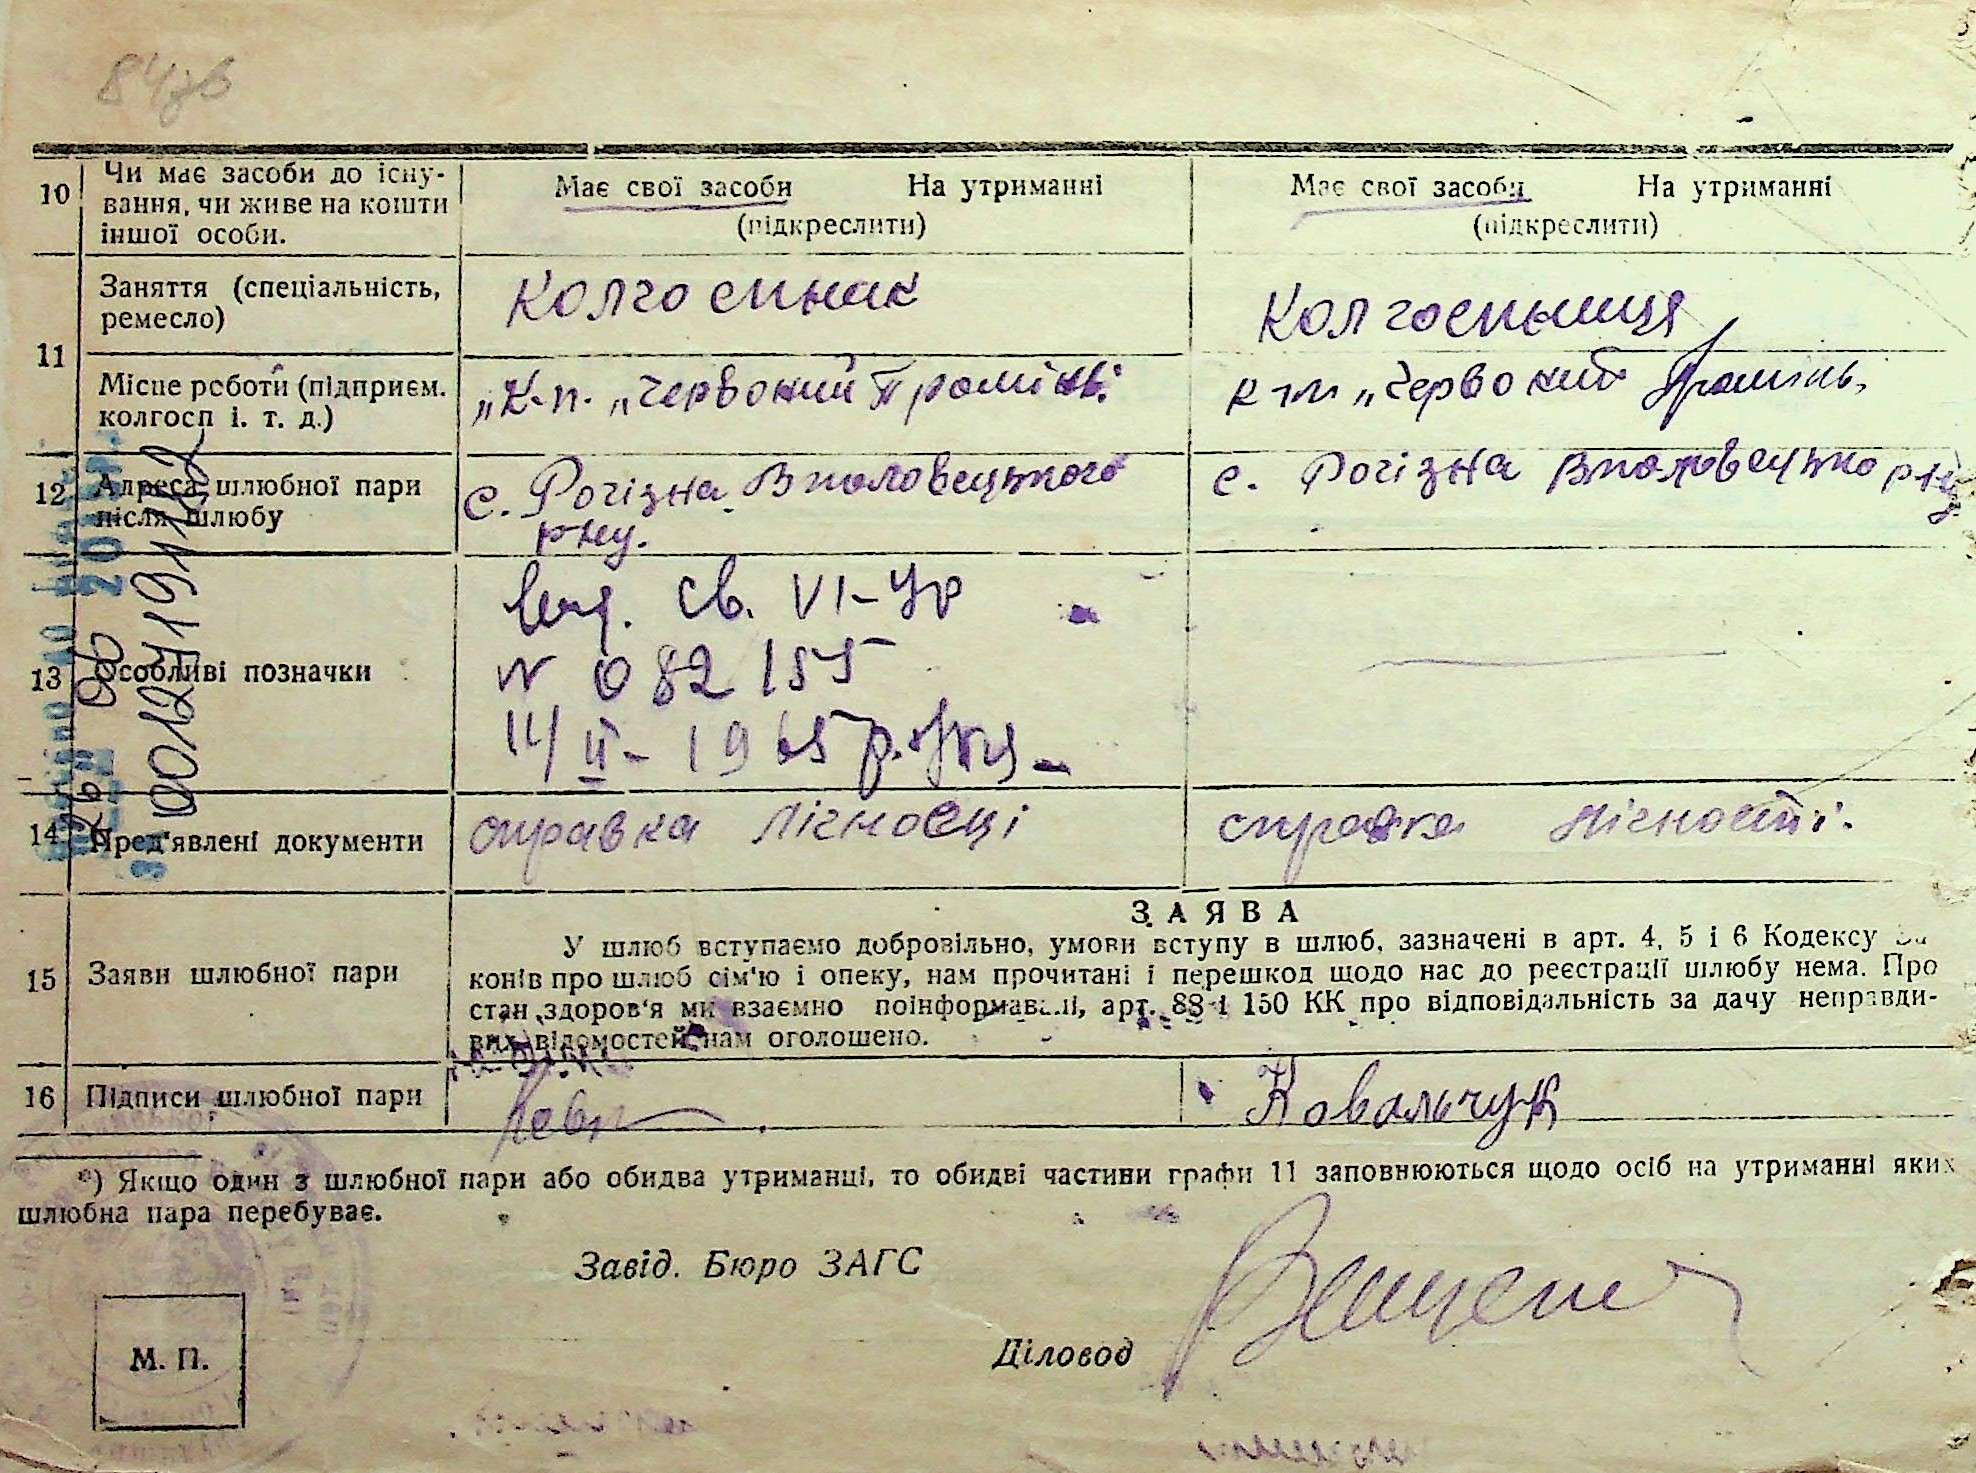 84зв
10 Чи має засоби до існу-
вання, чи живе на кошти
іншої особи.
Має свої засоби На утриманні
(підкреслити)
Має свої засоби На утриманні
(підкреслити)
11 Заняття (спеціальність,
ремесло)
Колгоспнак
Колгоспниця
Місце роботи (підприєм.
колгосп і. т. д.)
„К-п. „Червоний Промінь"
к-п „Червоний Промінь,
12 Адреса шлюбної пари
після шлюбу
с. Рогізна Вполовецького
р-ну.
с. Рогізна Вполовецького р-ну
13 Особливі позначки
Вид. св. VI-УР
N 082155
14/II - 1965 р.
14 Пред'явлені документи
справка лічносці
справка лічності.
15 Заяви шлюбної пари
ЗАЯВА
У шлюб вступаємо добровільно, умови вступу в шлюб, зазначені в арт. 4, 5 і 6 Кодексу За
конів про шлюб сім'ю і опеку, нам прочитані і перешкод щодо нас до реєстрації шлюбу нема. Про
стан здоров'я ми взаємно поінформавалі, арт. 88 і 150 КК про відповідальність за дачу неправди-
вих відомостей нам оголошено.
16 Підписи шлюбної пари
Ковальчук
*) Якщо один з шлюбної пари або обидва утриманці, то обидві частини графи 11 заповнюються щодо осіб на утриманні яких
шлюбна пара перебуває.
Завід. Бюро ЗАГС
Діловод
М. П.